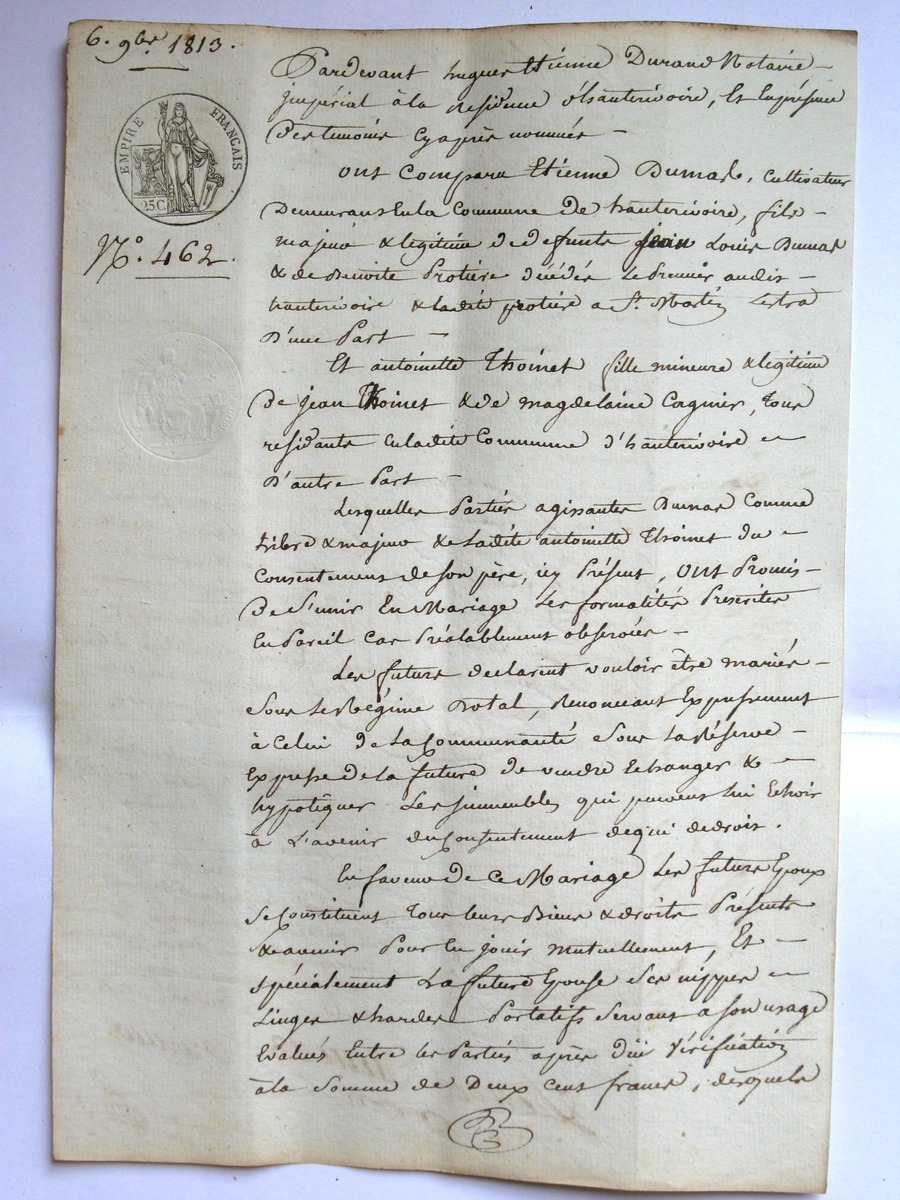 6. 9bre 1813.
EMPIRE FRANÇAIS
25 C.
N.° 462.
Pardevant hugues Etienne Durand Notaire
impérial à la residence d'hauterivoire, Et En présence
Des temoins Cy après nommés
ont Comparu Etienne Dumas, Cultivateur
Demeurant En la Commune De hauterivoire, fils
majeur & legitime de defunts jean Louis Dumas
& de Benoite Protière décédés Le Premier audit
hauterivoire & Ladite protière a St. Martin Lestra
D'une Part
Et antoinette Thoinet fille mineure & legitime
De jean Thoinet & de magdelaine Cognier, tous
residants En ladite Commune d'hauterivoire
D'autre Part
Lesquelles Parties agissantes Dumas Comme
Libre & majeur & Ladite antoinette Thoinet du
Consentement de son père, icy Présent, ont Promis
De S'unir En Mariage Les formalités Prescrites
En Pareil Cas Préalablement observées
Les futurs declarent vouloir être mariés
Sous Le Régime Dotal, Renoncant Expressement
à Celui de La Communauté Sous La Réserve
Expresse de la future de vendre Echanger &
hypotéquer Les immeubles qui peuvent lui Echoir
à L'avenir du Consentement de qui de droit.
En faveur De Ce Mariage Les futurs Epoux
Se Constituent tous leurs Biens & droits Présents
& avenir Pour En jouir mutuellement, Et
spécialement La future Epouse Ses nippes
Linges & hardes Portatifs Servant a son usage
Evalués Entre les Parties après düe Vérification
à la Somme de Deux Cent francs, desquels